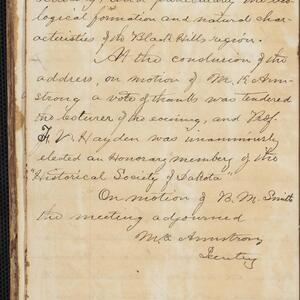 logical formation and natural char-
acteristics of the Black Hills region.
At the conclusion of the
address, on motion of M. K. Arm-
strong a vote of thanks was tendered
the lecturer of the evening, and Prof.
F. V. Hayden was unanimously
elected an Honorary member of the
"Historical Society of Dakota"
On motion of B. M. Smith
the meeting adjourned
M. K. Armstrong
Secretary